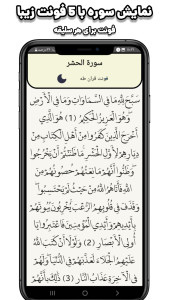 نمایش سوره با ۶ فونت زیبا
فونت برای هر سلیقه
سورة الحشر
فونت قران طه
سَبَّحَ لِلَّهِ مَا فِي السَّمَاوَاتِ وَمَا فِي الْأَرْضِ
وَهُوَ الْعَزِيزُ الْحَكِيمُ (1) هُوَ الَّذِي
أَخْرَجَ الَّذِينَ كَفَرُوا مِنْ أَهْلِ الْكِتَابِ مِنْ
دِيَارِهِمْ لِأَوَّلِ الْحَشْرِ مَا ظَنَنْتُمْ أَنْ يَخْرُجُوا
وَظَنُّوا أَنَّهُمْ مَانِعَتُهُمْ حُصُونُهُمْ مِنَ
اللَّهِ فَأَتَاهُمُ اللَّهُ مِنْ حَيْثُ لَمْ يَحْتَسِبُوا
وَقَذَفَ فِي قُلُوبِهِمُ الرُّعْبَ يُخْرِبُونَ بُيُوتَهُمْ
بِأَيْدِيهِمْ وَأَيْدِي الْمُؤْمِنِينَ فَاعْتَبِرُوا يَا
أُولِي الْأَبْصَارِ (2) وَلَوْلَا أَنْ كَتَبَ اللَّهُ
عَلَيْهِمُ الْجَلَاءَ لَعَذَّبَهُمْ فِي الدُّنْيَا وَلَهُمْ
فِي الْآخِرَةِ عَذَابُ النَّارِ (3) ذَلِكَ بِأَنَّهُمْ